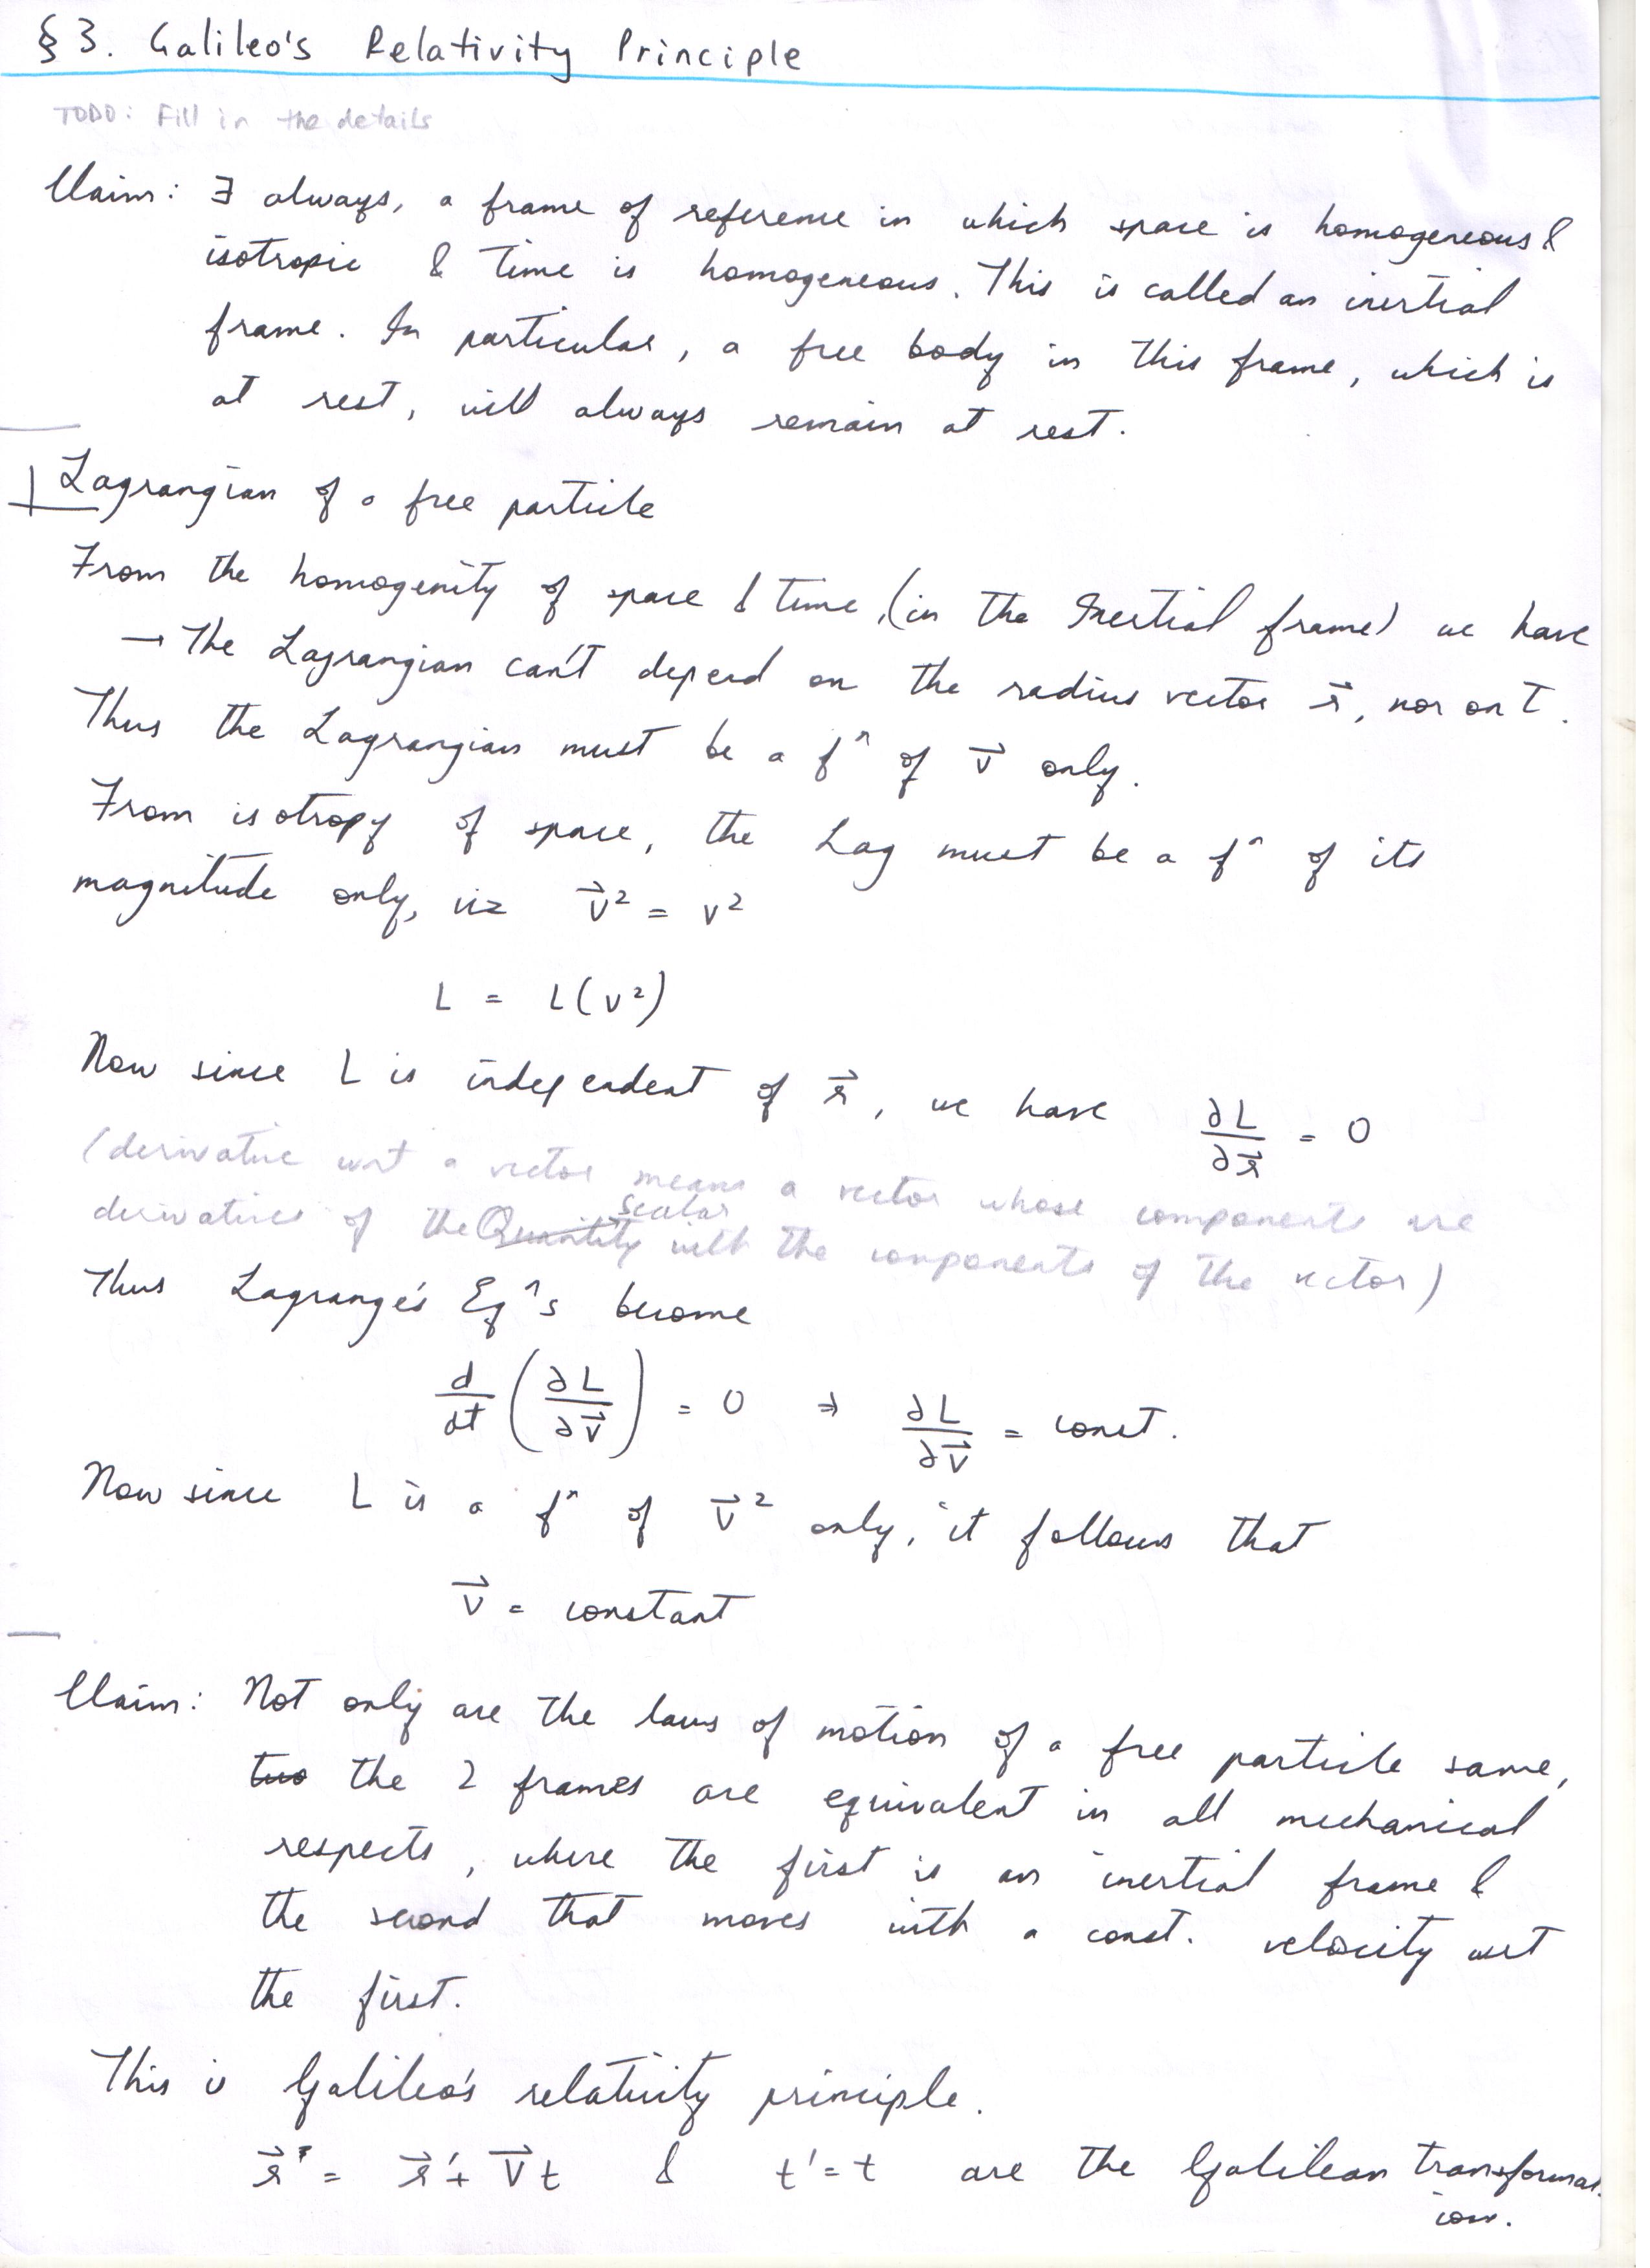 § 3. Galileo's Relativity Principle
TODO: Fill in the details
Claim: ∃ always, a frame of reference in which space is homogeneous &
isotropic & time is homogeneous. This is called an inertial
frame. In particular, a free body in this frame, which is
at rest, will always remain at rest.
Lagrangian of a free particle
From the homogenity of space & time, (in the Inertial frame) we have
→ The Lagrangian can't depend on the radius vector r⃗, nor on t.
Thus the Lagrangian must be a fⁿ of v⃗ only.
From isotropy of space, the Lag must be a fⁿ of its
magnitude only, viz v⃗² = v²
L = L(v²)
Now since L is independent of r⃗, we have ∂L/∂r⃗ = 0
(derivative wrt a vector means a vector whose components are
derivatives of the Quantity scalar with the components of the vector)
Thus Lagrange's Eqⁿs become
d/dt (∂L/∂v⃗) = 0 ⇒ ∂L/∂v⃗ = const.
Now since L is a fⁿ of v⃗² only, it follows that
v⃗ = constant
Claim: Not only are the laws of motion of a free particle same,
two the 2 frames are equivalent in all mechanical
respects, where the first is an inertial frame &
the second that moves with a const. velocity wrt
the first.
This is Galileo's relativity principle.
r⃗ = r⃗' + V⃗t & t' = t are the Galilean transformat
ion.